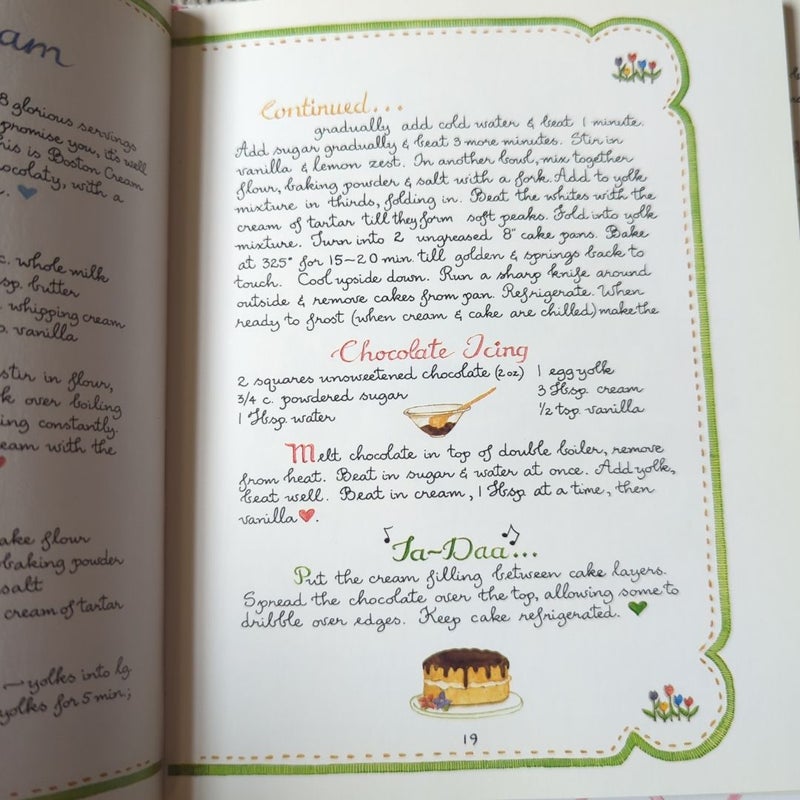 am
8 glorious servings
promise you, it's well
his is Boston Cream
hocolaty, with a
c. whole milk
sp. butter
whipping cream
vanilla
stir in flour,
k over boiling
ing constantly.
eam with the
ake flour
baking powder
salt
cream of tartar
yolks into lg.
yolks for 5 min;
Continued...
gradually add cold water & beat 1 minute.
Add sugar gradually & beat 3 more minutes. Stir in
vanilla & lemon zest. In another bowl, mix together
flour, baking powder & salt with a fork. Add to yolk
mixture in thirds, folding in. Beat the whites with the
cream of tartar till they form soft peaks. Fold into yolk
mixture. Turn into 2 ungreased 8" cake pans. Bake
at 325° for 15-20 min. till golden & springs back to
touch. Cool upside down. Run a sharp knife around
outside & remove cakes from pan. Refrigerate. When
ready to frost (when cream & cake are chilled) make the
Chocolate Icing
2 squares unsweetened chocolate (2 oz) 1 egg yolk
3/4 c. powdered sugar 3 Tbsp. cream
1 Tbsp water 1/2 tsp. vanilla
Melt chocolate in top of double boiler, remove
from heat. Beat in sugar & water at once. Add yolk,
beat well. Beat in cream, 1 Tbsp. at a time, then
vanilla ♥.
♪Ta~Daa♪...
Put the cream filling between cake layers.
Spread the chocolate over the top, allowing some to
dribble over edges. Keep cake refrigerated. ♥
19